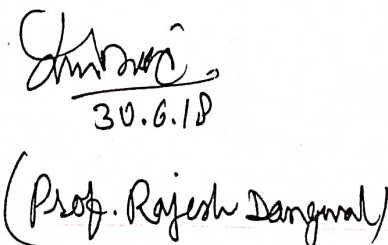 30.6.18
(Prof. Rajesh Dangwal)